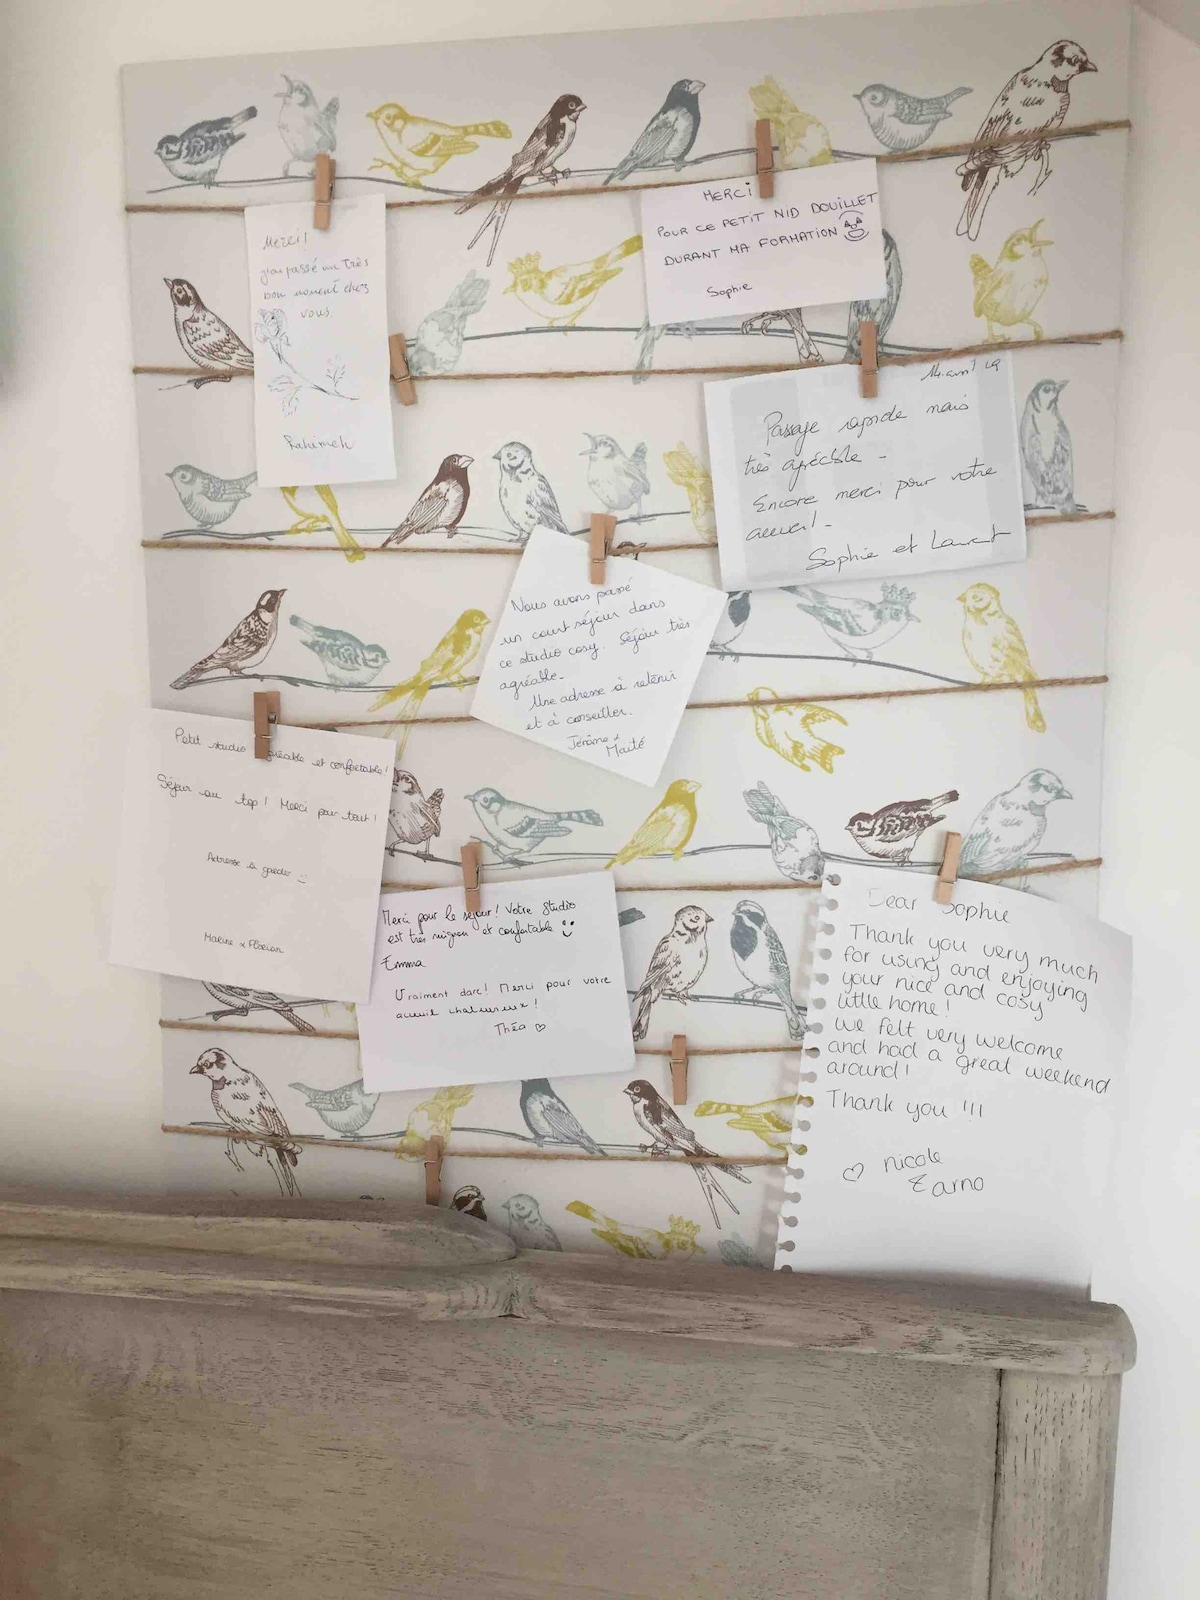 Merci!
j'ai passé un très
bon moment chez
vous.
Rahimeh
MERCI
POUR CE PETIT NID DOUILLET
DURANT MA FORMATION
Sophie
14 avril 19
Passage rapide mais
très agréable -
Encore merci pour votre
accueil -
Sophie et Laurent
Nous avons passé
un court séjour dans
ce studio cosy. Séjour très
agréable.
Une adresse à retenir
et à conseiller.
Jérôme &
Maïté
Petit studio agréable et confortable!
Séjour au top! Merci pour tout!
Adresse à garder :)
Marine & Florian
Merci pour le séjour! Votre studio
est très mignon et confortable :)
Emma
Vraiment darc! Merci pour votre
acueil chaleureux!
Théa ♡
Dear Sophie
Thank you very much
for using and enjoying
your nice and cosy
little home!
we felt very welcome
and had a great weekend
around!
Thank you !!!
♡ nicole
& arno